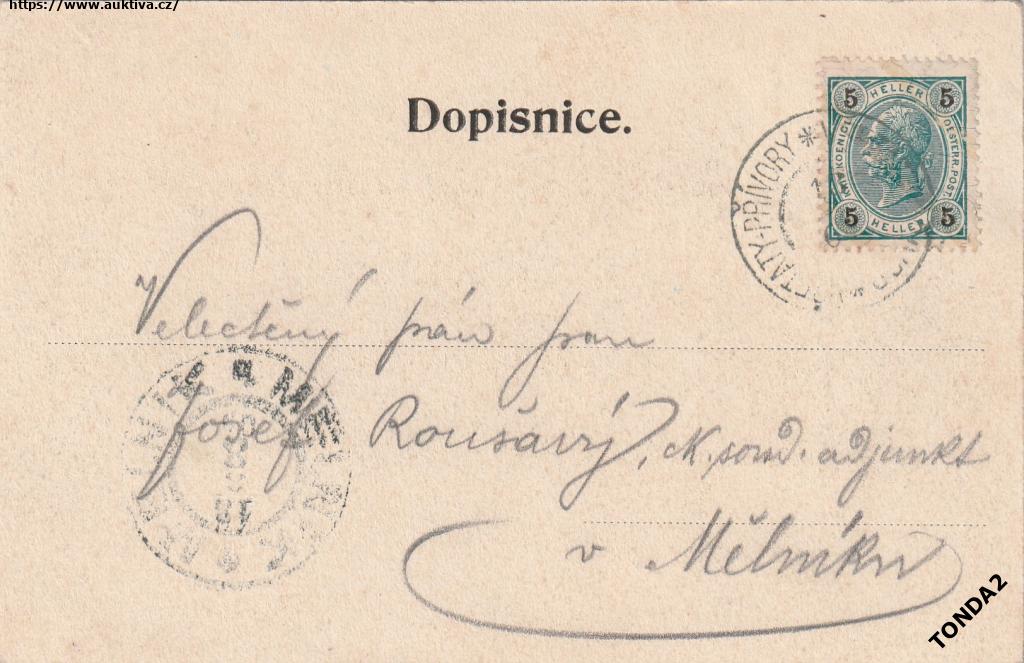 https://www.auktiva.cz/
Dopisnice.
5 HELLER 5
K.K. KOENIGL. OESTERR. POST.
5 HELLER 5
TATY-PŘÍVORY
Velectěný pán pan
Josef Roušavý, c.k. soud. adjunkt
v Mělníku
MĚLNÍK
TONDA2